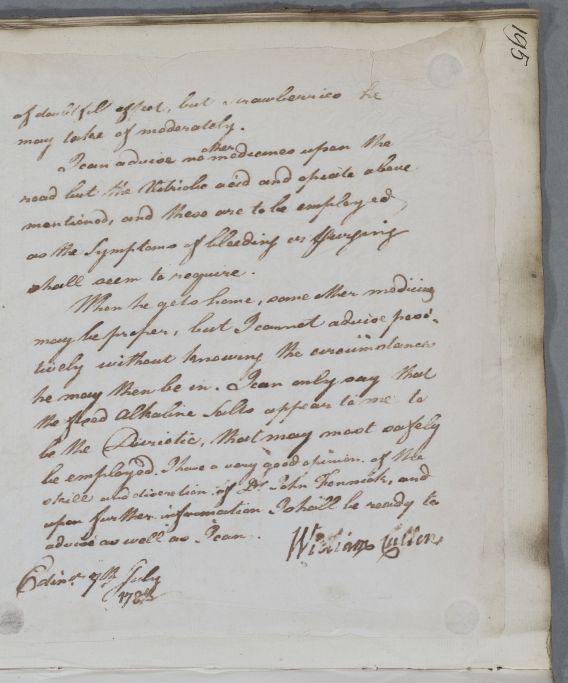 195
of doubtfull effect, but strawberries he
may take of moderately.
I can advise no other medicines upon the
road but the Vitriolic acid and opiate above
mentioned, and these are to be employed
as the symptoms of bleeding or Purging
shall seem to require.
When he gets home, some other medicines
may be proper, but I cannot advise posi-
tively without knowing the circumstances
he may then be in. I can only say that
the fixed Alkaline Salts appear to me to
be the Diuretic, that may most safely
be employed. I have a very good opinion of the
skill and discretion of Dr. John Fenwick, and
upon further information I shall be ready to
advise as well as I can.
William Cullen
Edinr. 7th July